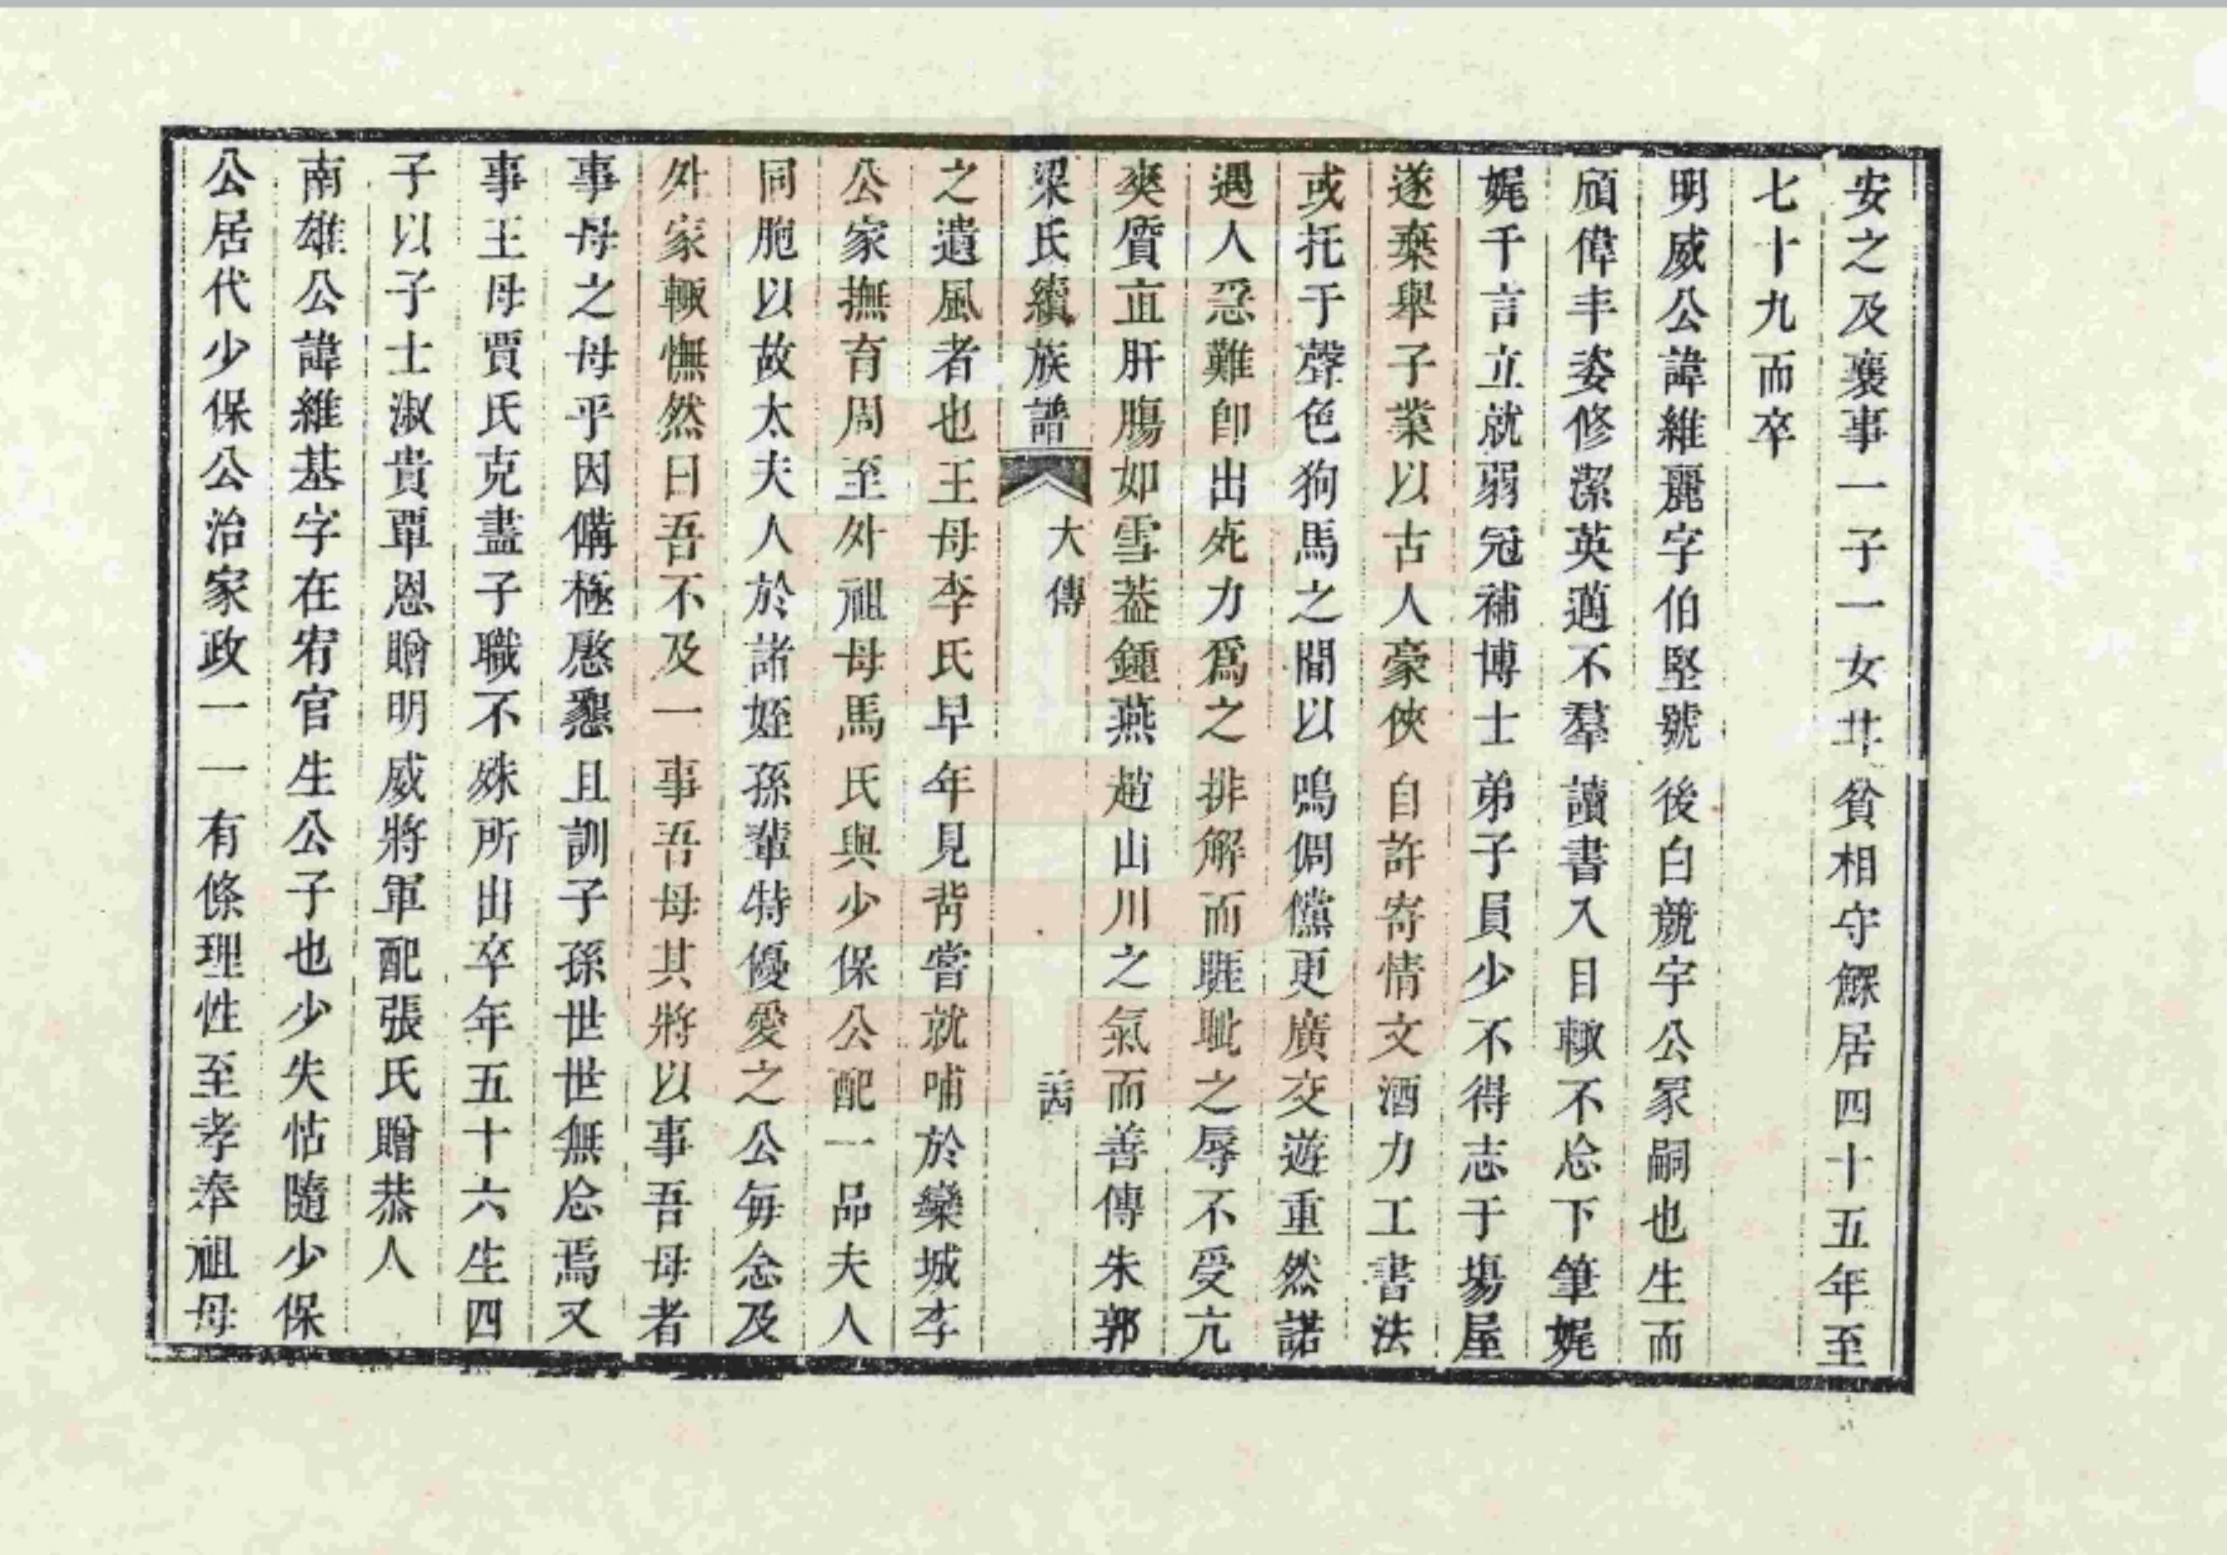 安之及襄事一子一女廿貧相守鰥居四十五年至
七十九而卒
明威公諱維麗字伯堅號後白競宇公冡嗣也生而
頎偉丰姿修潔英邁不羣讀書入目輙不忩下筆娓
娓千言立就弱冠補博士弟子員少不得志于塲屋
遂棄舉子業以古人豪俠自許寄情文酒力工書法
或托于聲色狗馬之間以鳴倜儻更廣交遊重然諾
遇人急難卽出死力爲之排解而睚眦之辱不受亢
爽質直肝膓如雪葢鍾燕趙山川之氣而善傳朱郭
梁氏續族譜 大傳
之遺風者也王母李氏早年見背嘗就哺於欒城李
公家撫育周至外祖母馬氏與少保公配一品夫人
同胞以故太夫人於諸姪孫輩特優愛之公每念及
外家輙憮然曰吾不及一事吾母其將以事吾母者
事母之母乎因備極慇懇且訓子孫世世無忩焉又
事王母賈氏克盡子職不殊所出卒年五十六生四
子以子士淑貴覃恩贈明威將軍配張氏贈恭人
南雄公諱維基字在宥官生公子也少失怙隨少保
公居代少保公治家政一一有條理性至孝奉祖母